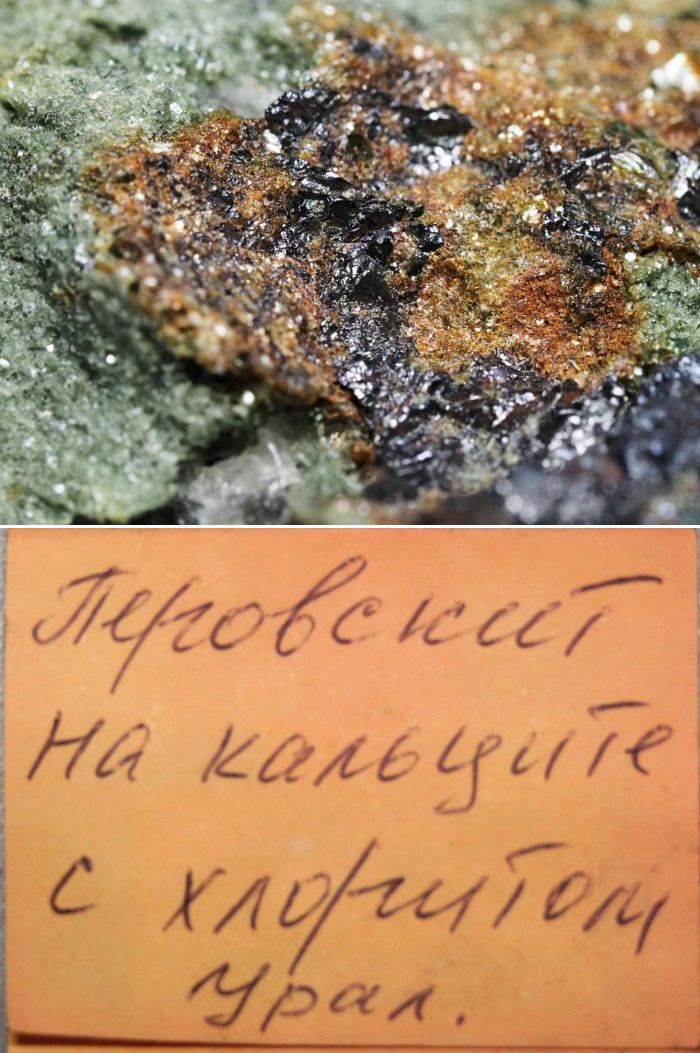 Перовскит
на кальците
с хлоритом
Урал.